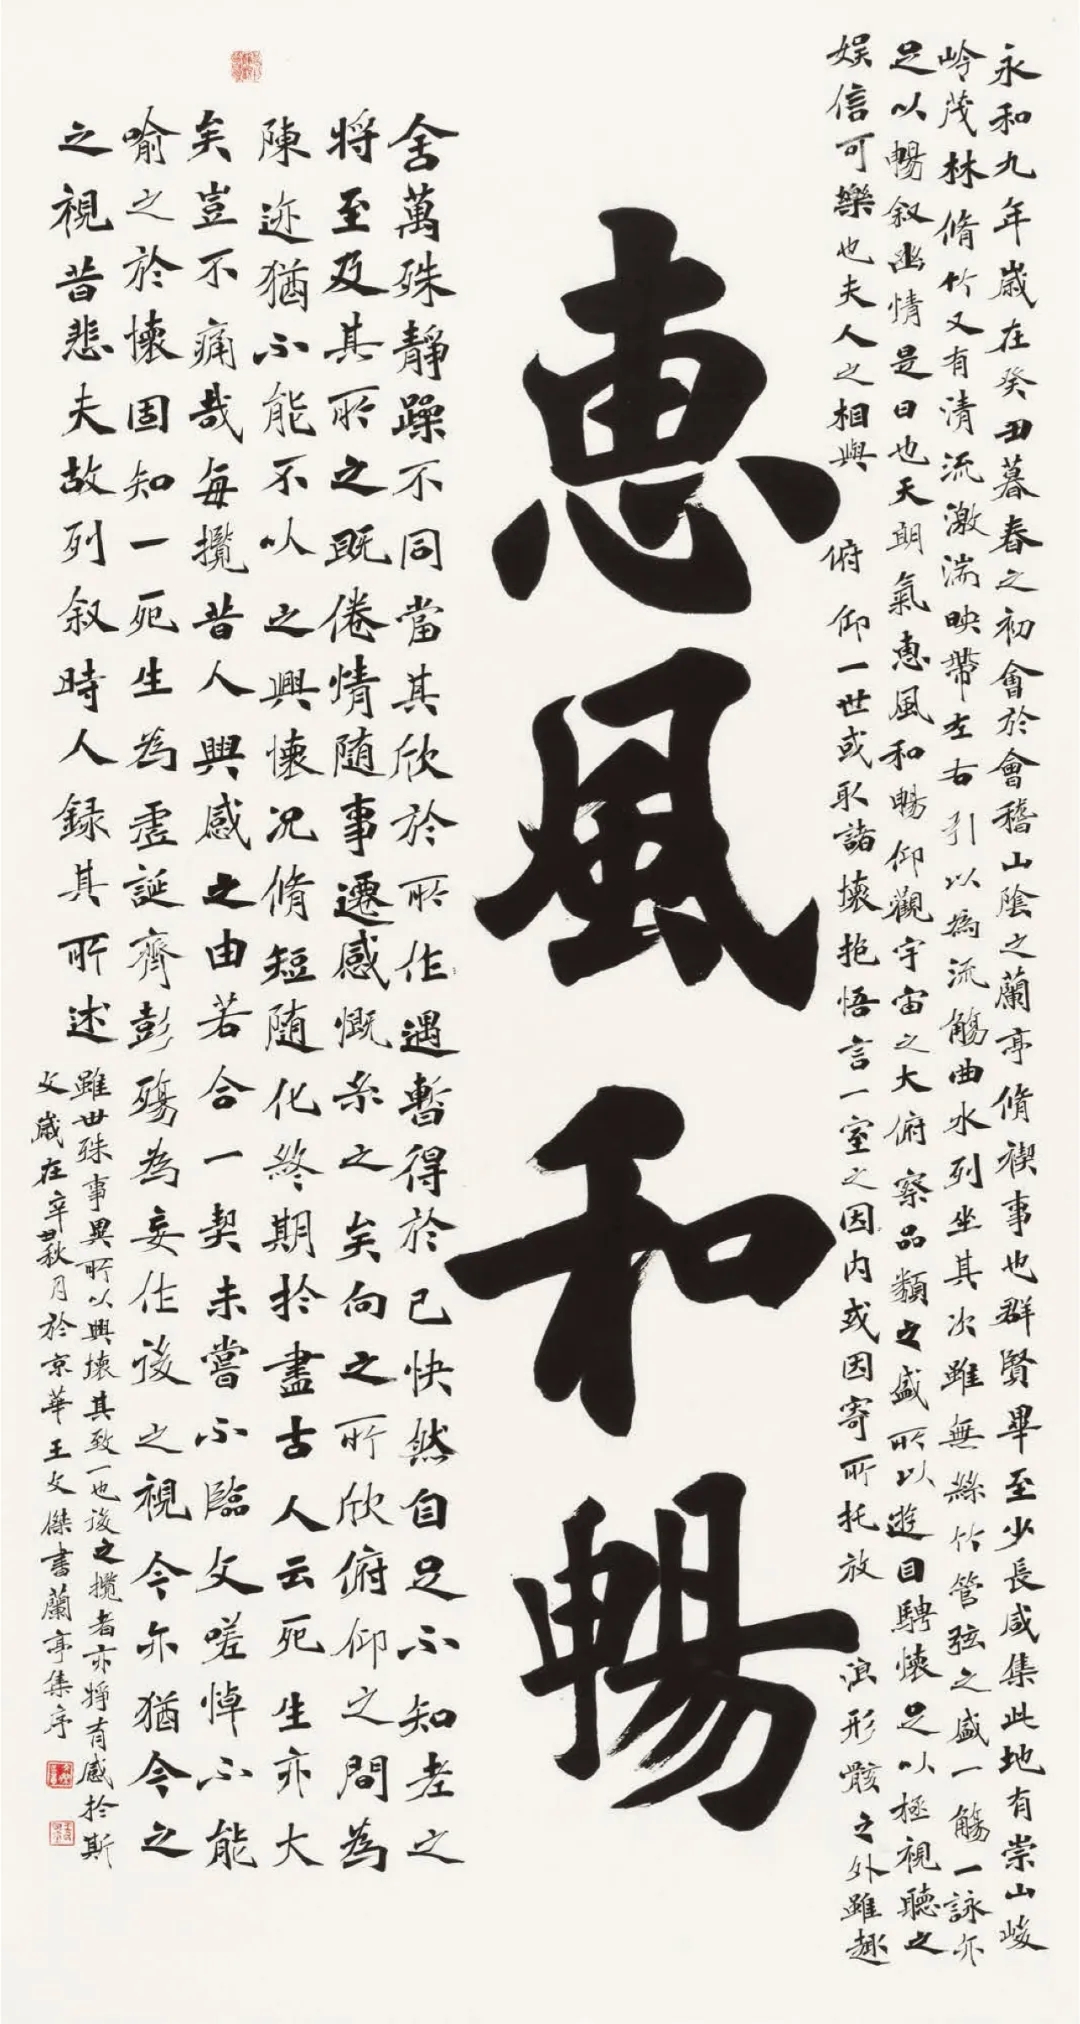 永和九年歳在癸丑暮春之初會於會稽山陰之蘭亭脩禊事也群賢畢至少長咸集此地有崇山峻
岭茂林脩竹又有清流激湍映帶左右引以為流觴曲水列坐其次雖無絲竹管弦之盛一觴一詠亦
足以暢叙幽情是日也天朗氣惠風和暢仰觀宇宙之大俯察品類之盛所以遊目騁懐足以極視聽之
娛信可樂也夫人之相與俯仰一世或取諸懐抱悟言一室之因内或因寄所托放浪形骸之外雖趣
惠風和暢
舍萬殊靜躁不同當其欣於所作遇暫得於己快然自足不知老之
將至及其所之既倦情随事遷感慨系之矣向之所欣俯仰之間為
陳迹猶不能不以之興懐况脩短随化終期於盡古人云死生亦大
矣豈不痛哉每攬昔人興感之由若合一契未嘗不臨文嗟悼不能
喻之於懐固知一死生為虚誕齊彭殤為妄作後之視今亦猶今之
之視昔悲夫故列叙時人録其所述
雖世殊事異所以興懐其致一也後之攬者亦將有感於斯
文歳在辛丑秋月於京華王文傑書蘭亭集序